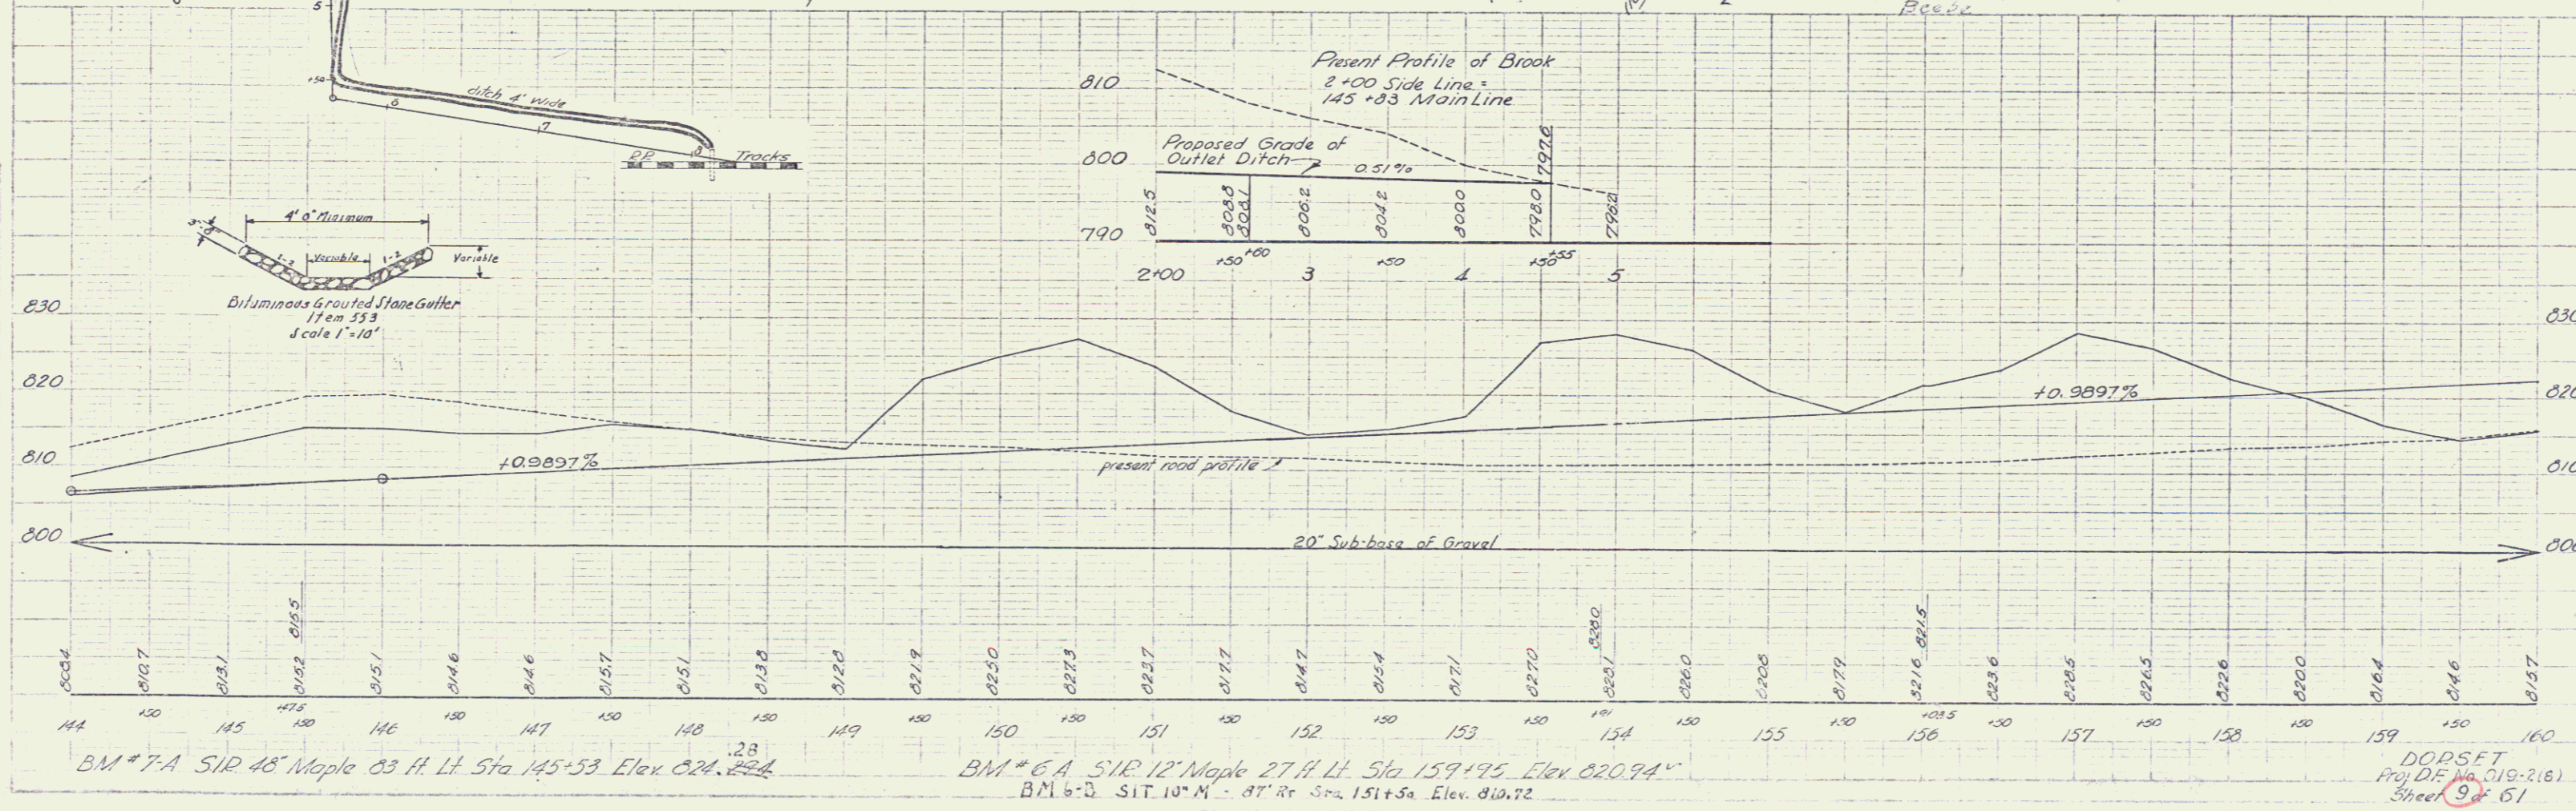 5
Beebe
+50
6
ditch 4' Wide
7
8
R.R. Tracks
4' 0" Minimum
3"-8"
1-2
Variable
1-2
Variable
Bituminous Grouted Stone Gutter
Item 553
Scale 1"=10'
Present Profile of Brook
2+00 Side Line =
145+83 Main Line
810
Proposed Grade of
Outlet Ditch
0.51%
797.6
800
812.5 808.8 808.1 806.2 804.2 800.0 798.0 796.2
790
+50 +60 +50 +50 +55
2+00 3 4 5
830 830
820 820
+0.9897%
810 810
+0.9897%
present road profile
800 800
20" Sub-base of Gravel
815.5 828.0 821.5
808.4 810.7 813.1 815.2 815.1 814.6 814.6 815.7 815.1 813.8 812.8 821.9 825.0 827.3 823.7 817.7 814.7 815.4 817.1 827.0 828.1 826.0 820.8 817.9 821.6 823.6 828.5 826.5 822.6 820.0 816.4 814.6 815.7
+50 +47.5 +50 +50 +50 +50 +50 +50 +50 +50 +50 +91 +50 +50 +03.5 +50 +50 +50 +50
144 145 146 147 148 149 150 151 152 153 154 155 156 157 158 159 160
.28
BM #7-A S.I.R. 48" Maple 83 ft. Lt Sta 145+53 Elev. 824.294
BM #6 A S.I.R. 12" Maple 27 ft Lt Sta 159+95 Elev 820.94
BM 6-B SIT 10" M - 87' Rt Sta. 151+50 Elev. 810.72
DORSET
Proj D.F. No 019-2(8)
Sheet 9 of 61